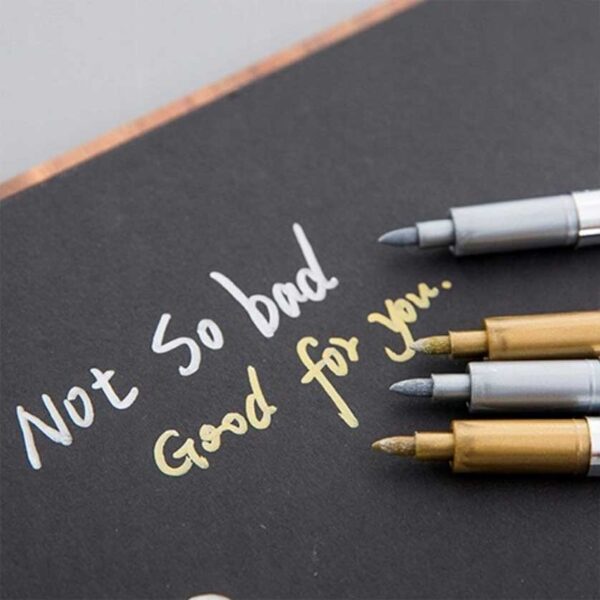 Not So bad
Good for you.